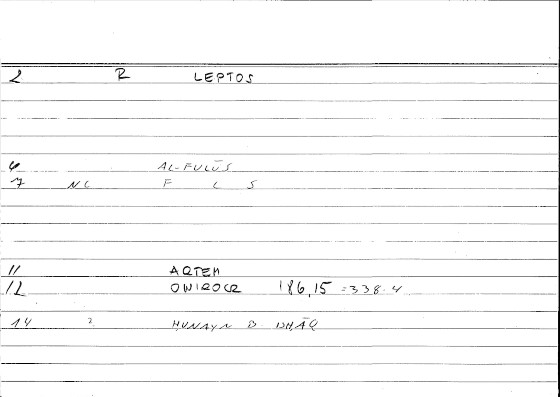 2 R LEPTOS
6 AL-FULŪS
7 NL F L S
11 ARTEM
12 ONIROCR 186,15 = 338.4
14 2 HUNAYN B. ISHĀQ